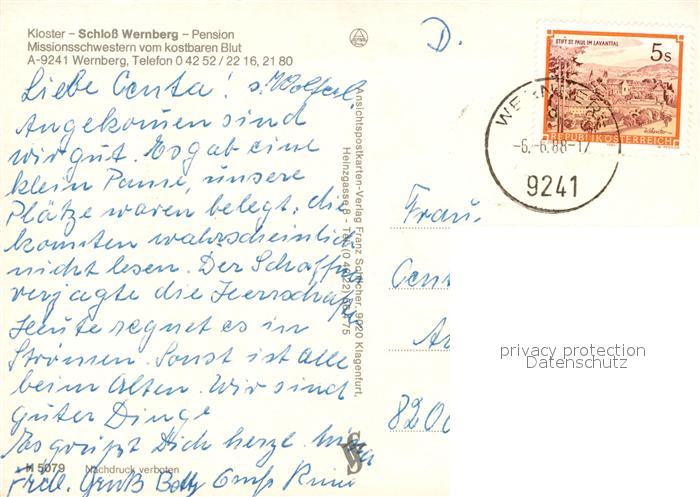 Kloster – Schloß Wernberg – Pension
Missionsschwestern vom kostbaren Blut
A-9241 Wernberg, Telefon 0 42 52 / 22 16, 21 80
Liebe Centa! u. Wolferl,
Angekommen sind
wir gut. Es gab eine
klein Panne, unsere
Plätze waren belegt, die
konnten wahrscheinlich
nicht lesen. Der Schaffner
verjagte die Herrschaft.
Heute regnet es in
Strömen. Sonst ist alle
beim Alten. Wir sind
guter Dinge
Es grüßt Dich herzl.
Fred. Gruß Gruß
H 5079 Nachdruck verboten
Ansichtspostkarten-Verlag Franz Schilcher, 9020 Klagenfurt,
Heinzgasse 8 - Tel. (0 42 22)
D.
STIFT ST. PAUL IM LAVANTTAL
5 s
REPUBLIK ÖSTERREICH
-6.-6.88-17
9241
Frau
Centa
820
privacy protection
Datenschutz